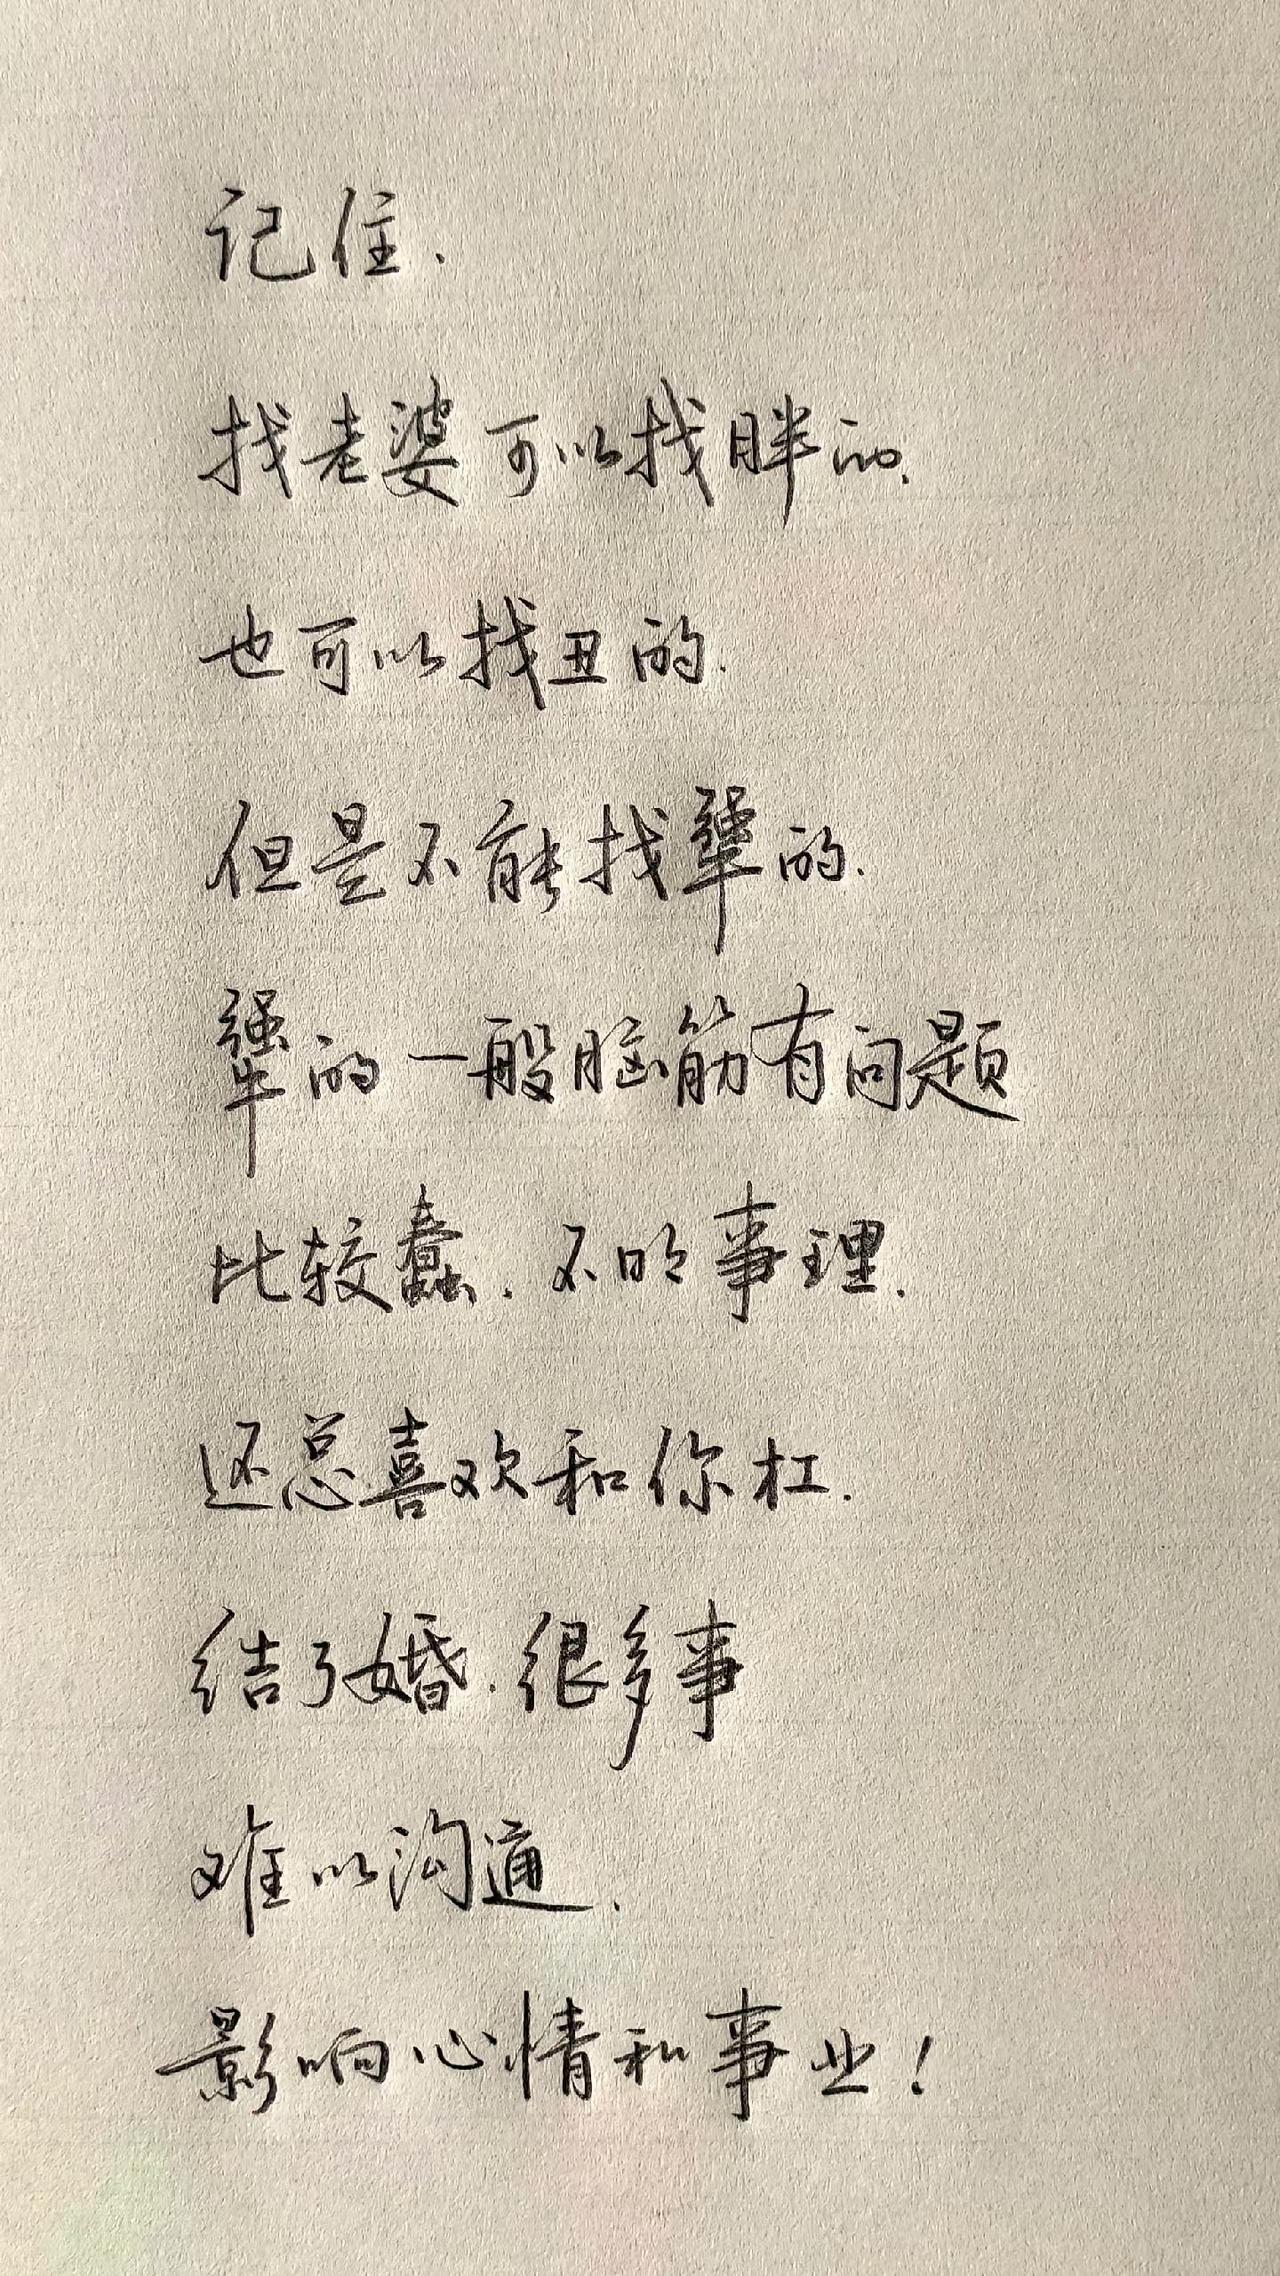 记住.
找老婆可以找胖的.
也可以找丑的.
但是不能找犟的.
犟的一般脑筋有问题
比较蠢.不明事理.
还总喜欢和你杠.
结了婚.很多事
难以沟通.
影响心情和事业!